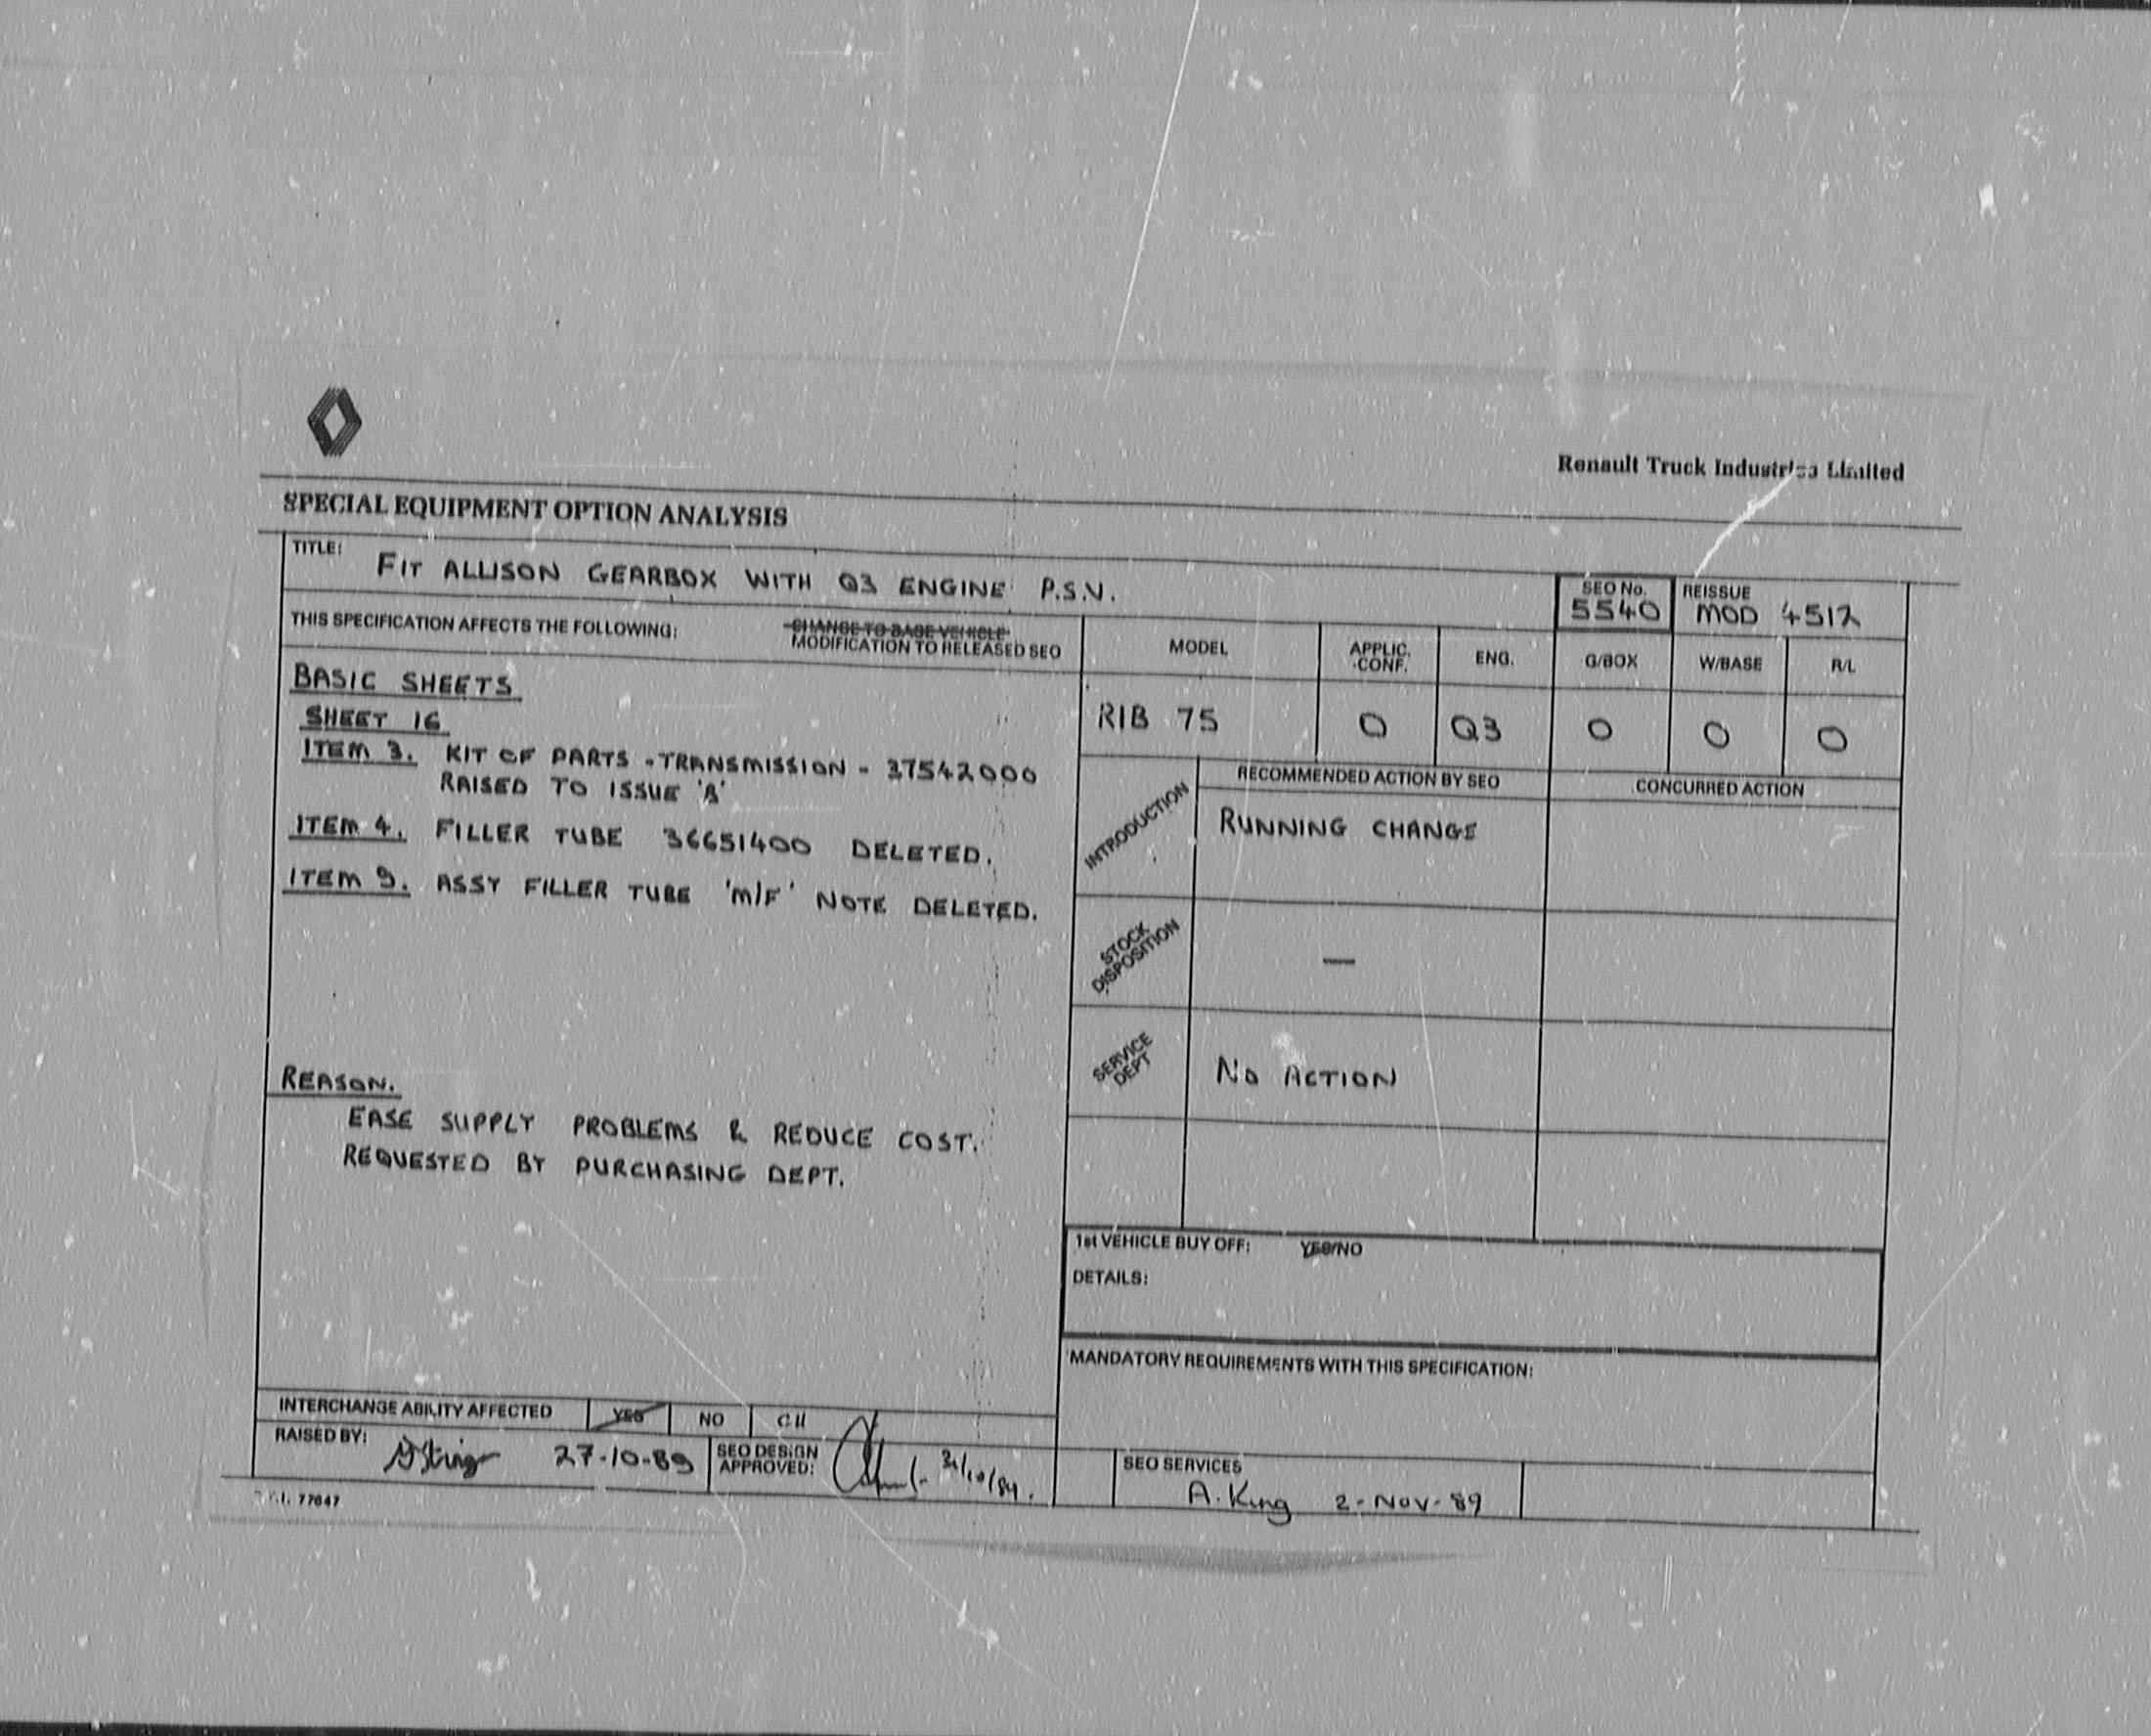 Renault Truck Industries Limited
SPECIAL EQUIPMENT OPTION ANALYSIS
TITLE: FIT ALLISON GEARBOX WITH Q3 ENGINE P.S.V.
SEO No. 5540
REISSUE MOD 4512
THIS SPECIFICATION AFFECTS THE FOLLOWING:
CHANGE TO BASE VEHICLE
MODIFICATION TO RELEASED SEO
MODEL APPLIC. CONF. ENG. G/BOX W/BASE R/L
RIB 75 O Q3 O O O
BASIC SHEETS
SHEET 16
ITEM 3. KIT OF PARTS - TRANSMISSION - 37542000
RAISED TO ISSUE
ITEM 4. FILLER TUBE 36651400 DELETED.
ITEM 9. ASSY FILLER TUBE 'M/F' NOTE DELETED.
REASON.
EASE SUPPLY PROBLEMS & REDUCE COST.
REQUESTED BY PURCHASING DEPT.
RECOMMENDED ACTION BY SEO CONCURRED ACTION
INTRODUCTION RUNNING CHANGE
STOCK DISPOSITION —
SERVICE DEPT NO ACTION
1st VEHICLE BUY OFF: YES/NO
DETAILS:
MANDATORY REQUIREMENTS WITH THIS SPECIFICATION:
INTERCHANGE ABILITY AFFECTED YES NO
RAISED BY: 27-10-89
SEO DESIGN APPROVED:
SEO SERVICES
A. King 2-Nov-89
77647